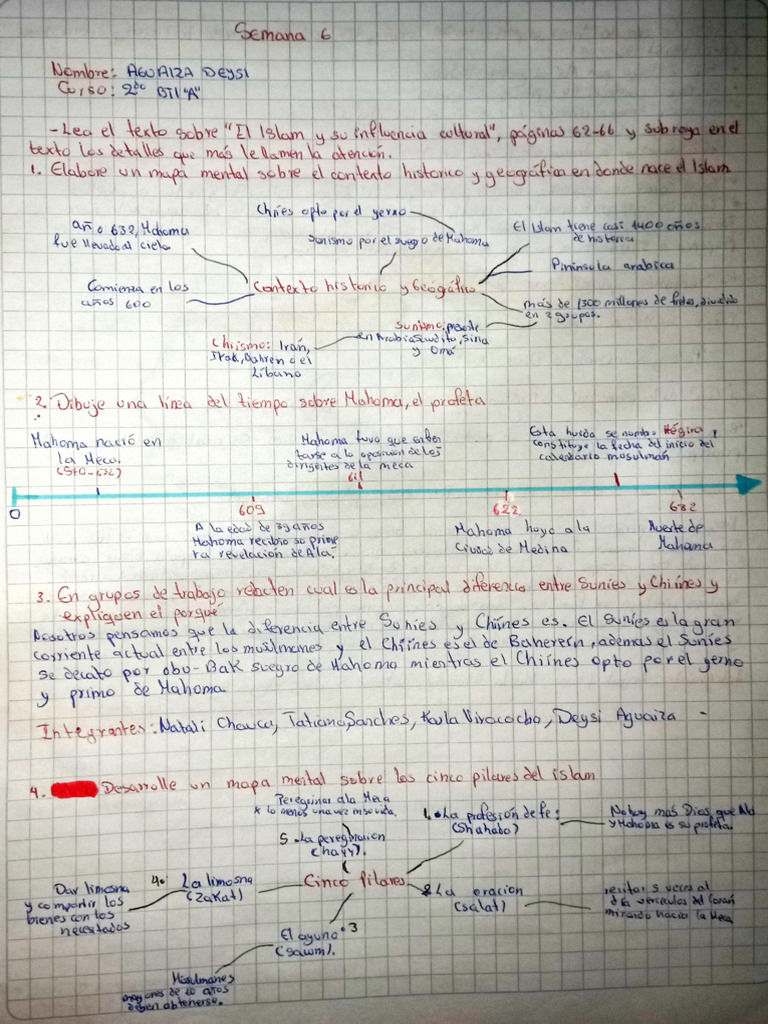 Semana 6
Nombre: AGUAIZA DEYSI
Curso: 2do BTI "A"
- Lea el texto sobre "El Islam y su influencia cultural", páginas 62-66 y subraya en el
texto los detalles que más le llamen la atención.
1. Elabore un mapa mental sobre el contexto historico y geográfico en donde nace el Islam
Chiíes opto por el yerno
Sunismo por el suegro de Mahoma
año 632, Mahoma
fue llevado al cielo
El Islan tiene casi 1400 años
de historia
Pininsula arabica
Comienza en los
años 600
Contexto historico y Geográfico
más de 1300 millones de fieles, dividido
en 2 grupos.
Sunismo: presente
en Arabia Saudito, Siria
y Omá
Chiismo: Irán,
Irak, Bahren del
Líbano
2. Dibuje una línea del tiempo sobre Mahoma, el profeta
Mahoma nació en
la Meca.
(570-632)
Mahoma tuvo que enfren
tarse a lo oposicion de los
dirigentes de la meca
611
Esta huida se nombro Hégira y
constituye la fecha del inicio del
calendario musulmán
0
609
622
632
A la edad de 39 años
Mahoma recibio su prime
ra revelacion de Alá.
Mahoma huyo a la
Ciudad de Medina
Muerte de
Mahoma
3. En grupos de trabajo rebaten cual es la principal diferencia entre Suníes y Chiínes y
expliquen el porqué
Nosotros pensamos que la diferencia entre Sunies y Chiines es. El suníes es la gran
corriente actual entre los musulmanes y el Chiínes es el de Baherein, ademas el Suníes
se decato por abu-Bak suegro de Mahoma mientras el Chiines opto por el yerno
y primo de Mahoma
Integrantes: Natali Chauca, Tatiana Sanches, Karla Viracocha, Deysi Aguaiza -
4. Desarrolle un mapa mental sobre los cinco pilares del islam
Peregrinar a la Meca
a lo menos una vez
5. La peregrinacion
(hayy).
1. La profesión de fe:
(Shahabo)
No hay más Dios que Alá
y Mahoma es su profeta.
Dar limosna
y compartir los
bienes con los
necesitados
4. La limosna
(zakat)
Cinco Pilares
2. La oracion
(salat)
recitar 5 veces al
día verciculos del Corán
mirando hacia la Meca
El ayuno 3
(sawm).
Musulmanes
mayores de 10 años
deben abtenerse.